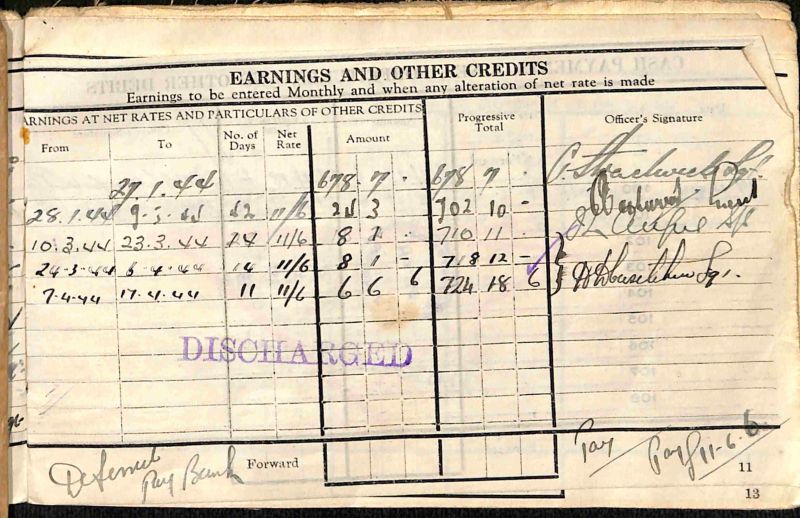 EARNINGS AND OTHER CREDITS
Earnings to be entered Monthly and when any alteration of net rate is made
ARNINGS AT NET RATES AND PARTICULARS OF OTHER CREDITS
From To No. of Days Net Rate Amount Progressive Total Officer's Signature
27.1.44 678. 7. - 678 7 -
28.1.44 9-3-44 42 11/6 24 3 702 10 -
10.3.44 23.3.44 14 11/6 8 1 710 11 -
24-3-44 6-4-44 14 11/6 8 1 - 718 12 -
7-4-44 17-4-44 11 11/6 6 6 6 724 18 6
DISCHARGED
Deferred Pay Forward Pay Pay 11-6-6
11
13